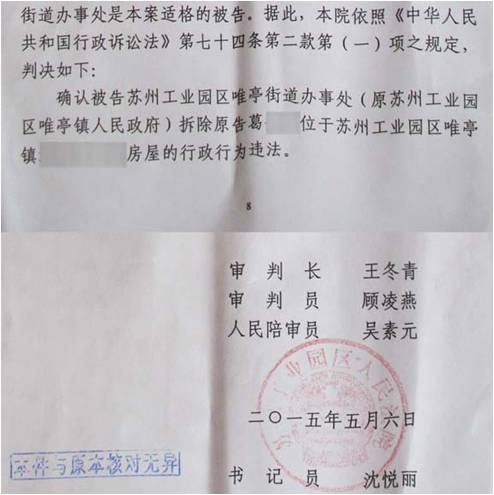 街道办事处是本案适格的被告。据此，本院依照《中华人民
共和国行政诉讼法》第七十四条第二款第（一）项之规定，
判决如下：
确认被告苏州工业园区唯亭街道办事处（原苏州工业园
区唯亭镇人民政府）拆除原告葛 位于苏州工业园区唯亭
镇 房屋的行政行为违法。
8
审判长 王冬青
审判员 顾凌燕
人民陪审员 吴素元
二〇一五年五月六日
工业园区人民
本件与原本核对无异
书记员 沈悦丽